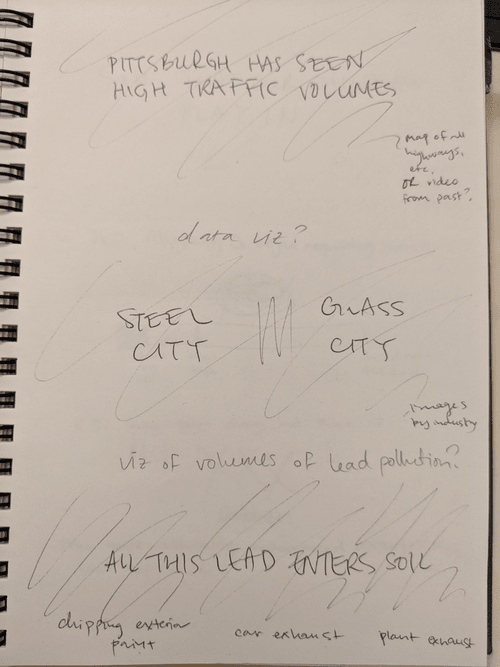 PITTSBURGH HAS SEEN
HIGH TRAFFIC VOLUMES
map of all
highways,
etc.
OR video
from past?
data viz?
STEEL
CITY
GLASS
CITY
images
by industry
viz of volumes of lead pollution?
ALL THIS LEAD ENTERS SOIL
chipping exterior
paint
car exhaust
plant exhaust